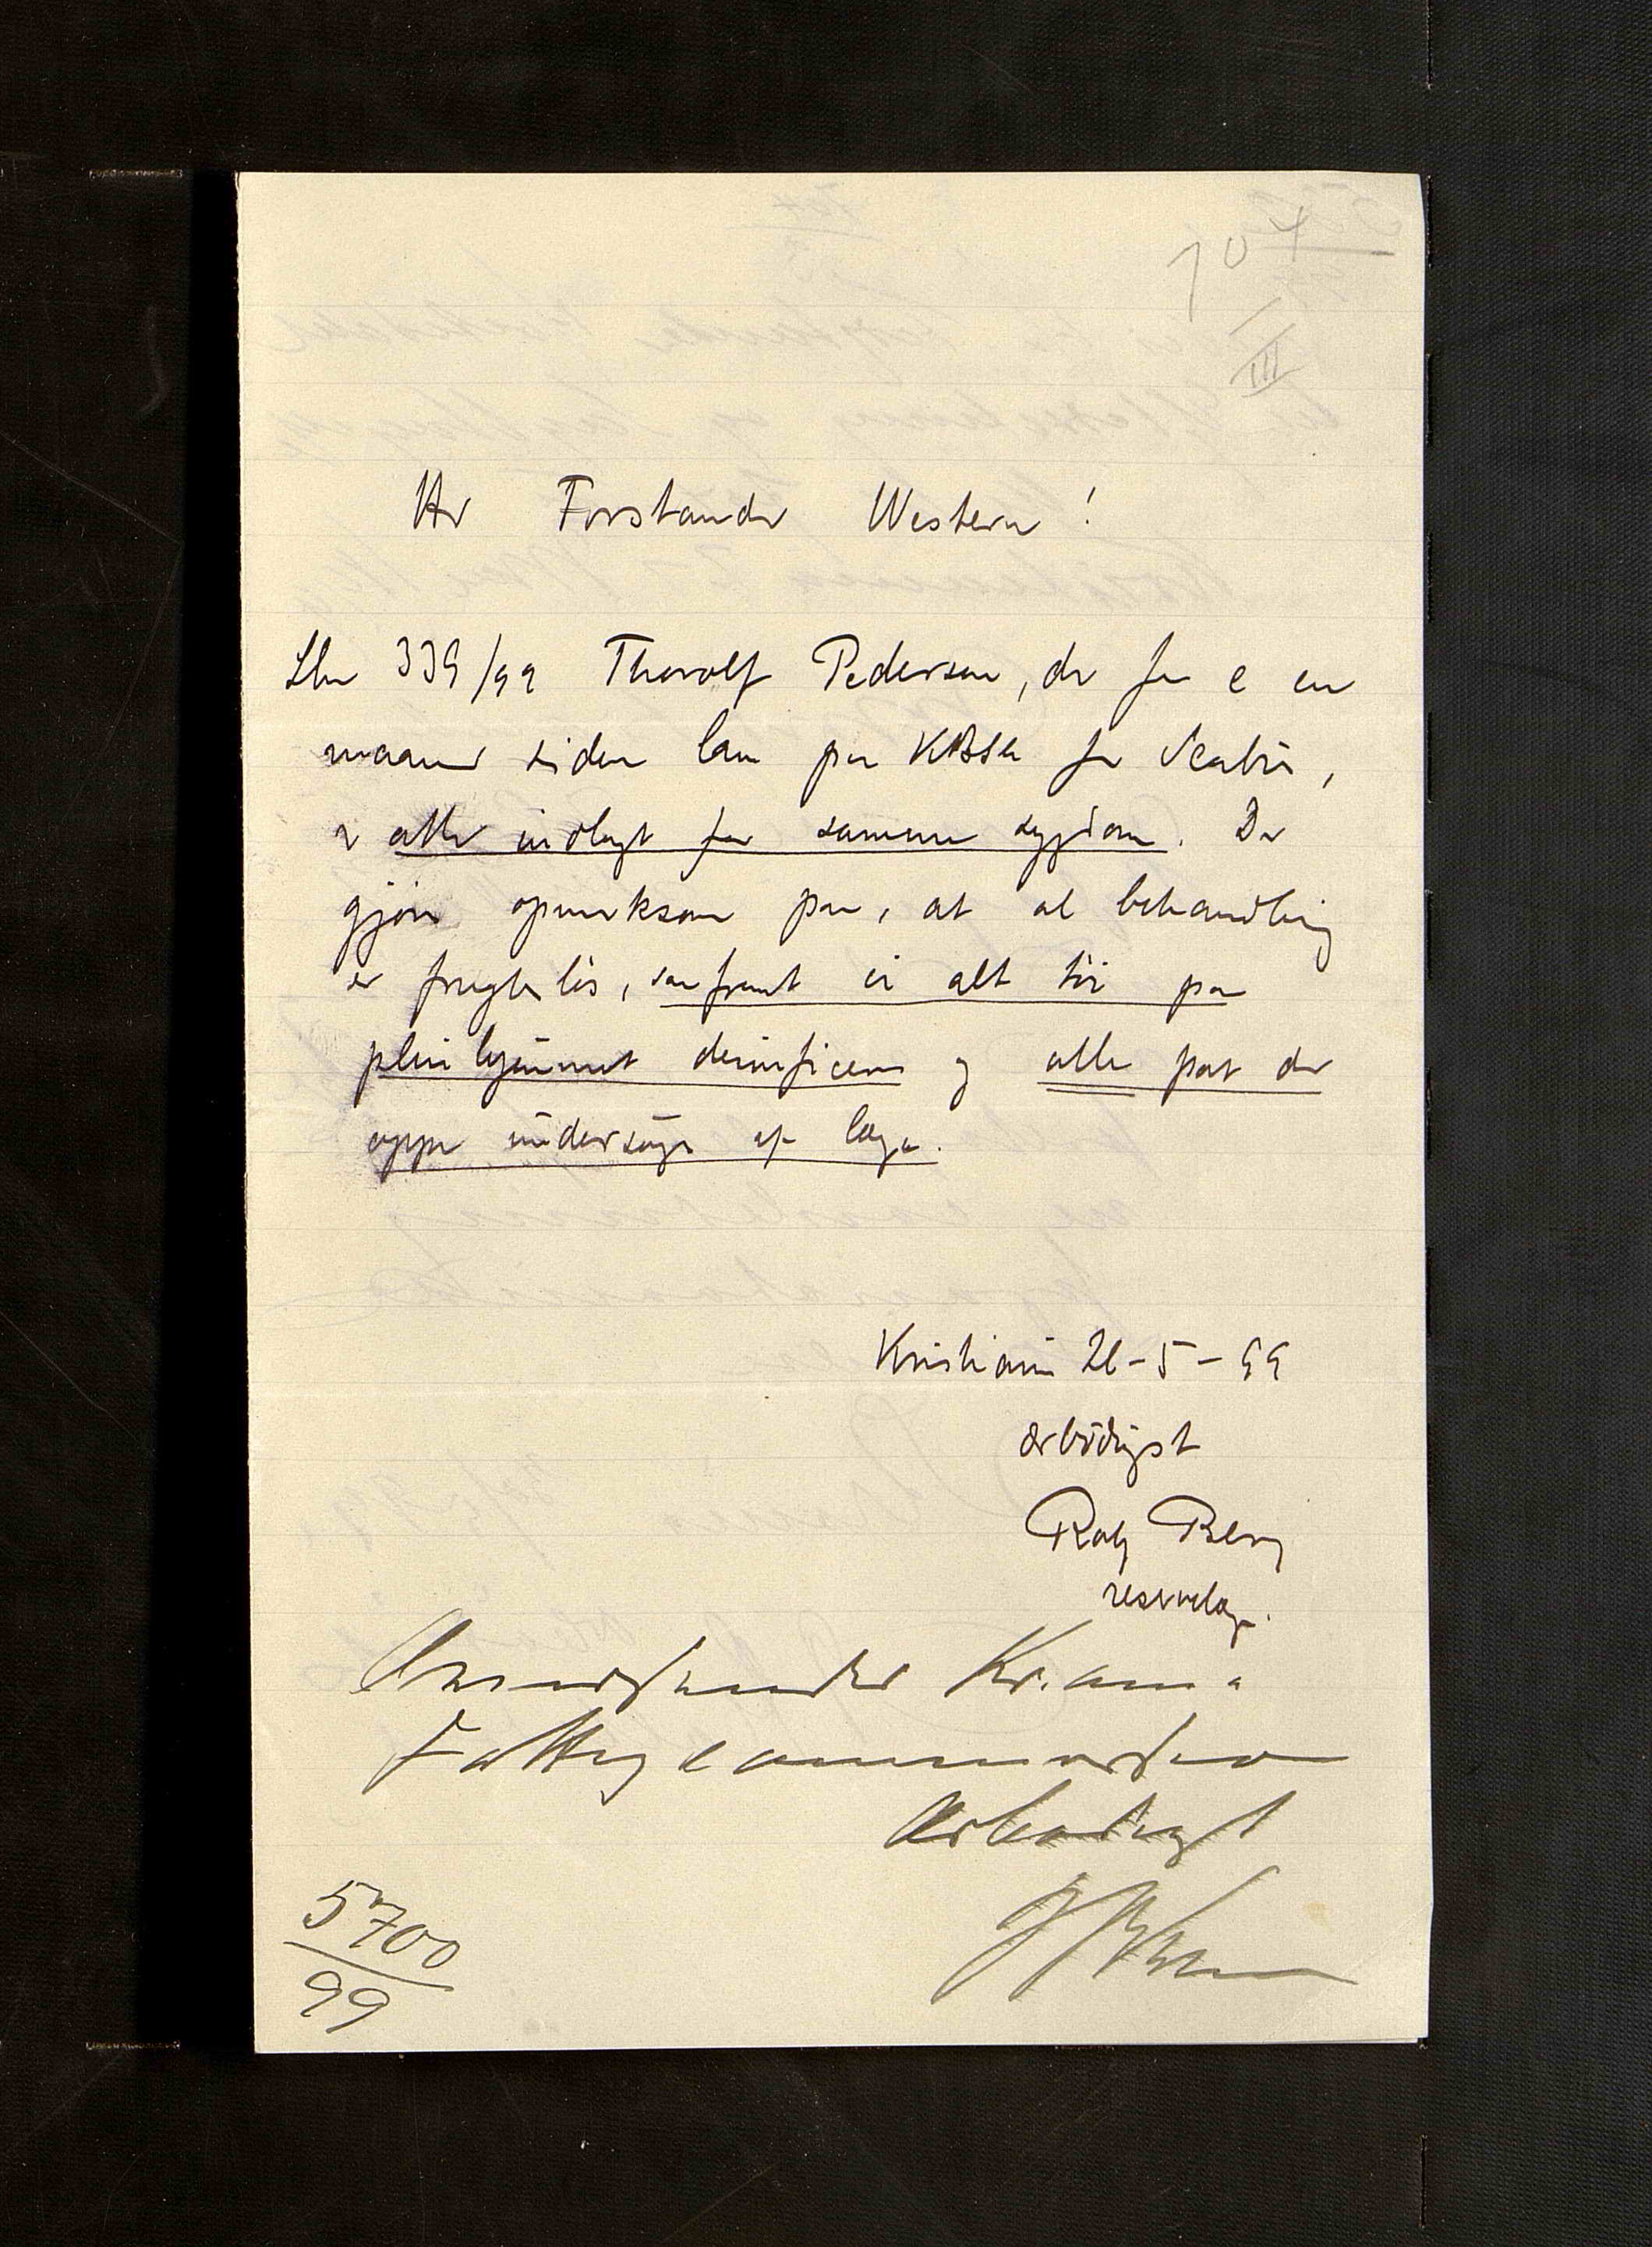 704
III
Hr Forstander Western!
Lbn 339/99 Thorolf Pedersen, der for c en
maaned siden laa paa KBSh for Scabies,
er atter indlagt for samme sygdom. De
gjøres opmerksom paa, at al behandling
er frugtesløs, saafremt ei alt tøi paa
pleiehjemmet desinficeres og alle pat der
oppe undersøges af læge.
Kristiania 26-5-99
ærbødigst
Rolf Berg
reservelæge.
Oversendes Kr.ania
Fattigcommission
Ærbødigst
5700
99